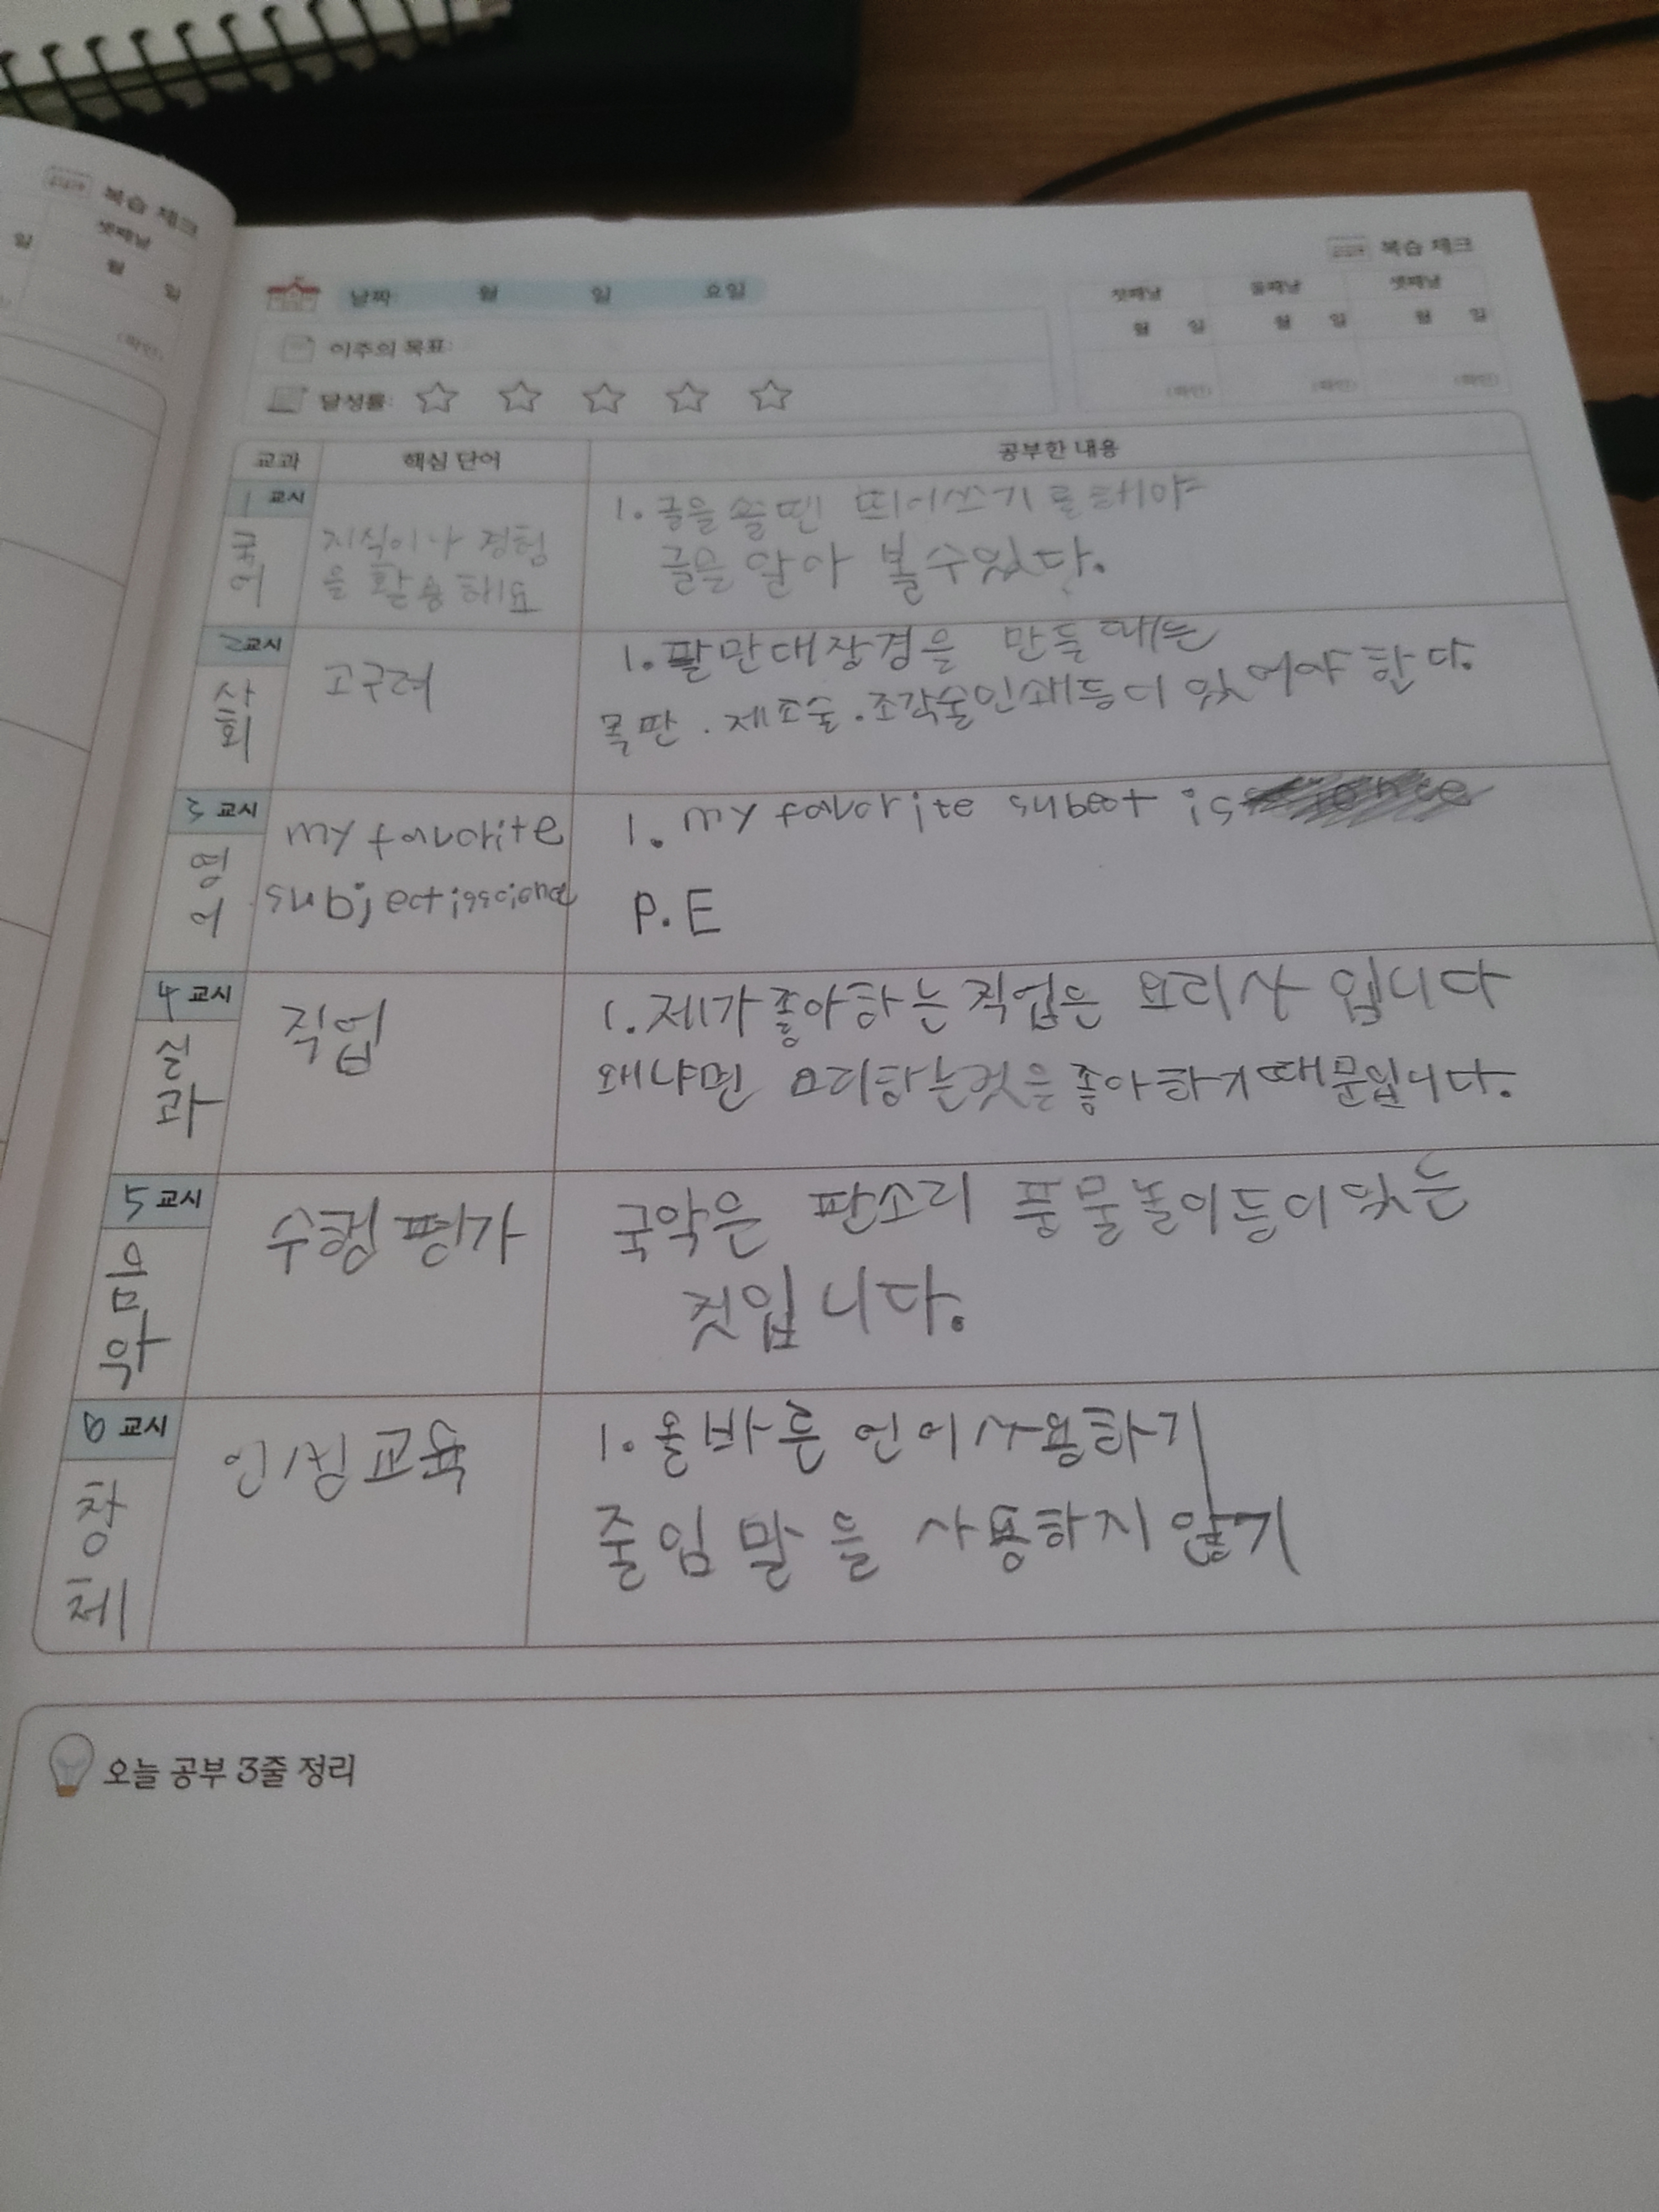 복습 체크
셋째날
일 월 일
(확인)
복습 체크
날짜: 월 일 요일
첫째날 둘째날 셋째날
월 일 월 일 월 일
이주의 목표:
(확인) (확인) (확인)
달성률:
교과 핵심 단어 공부한 내용
1 교시
국어
지식이나 경험
을 활용해요
1. 글을 쓸땐 띄어쓰기를해야
글을 알아 볼수있다.
2교시
사회
고구려
1. 팔만대장경을 만들때는
목판 . 제조술 . 조각술인쇄등이 있어야 한다.
3 교시
영어
my favorite
subject isscience
1. my favorite subect is
P.E
4 교시
실과
직업
1. 제가좋아하는직업은 요리사 입니다
왜냐면 요리하는것을좋아하기때문입니다.
5 교시
음악
수행평가
국악은 판소리 풍물놀이등이있는
것입니다.
6 교시
창체
인성교육
1. 올바른 언어사용하기
줄임말을 사용하지않기
오늘 공부 3줄 정리